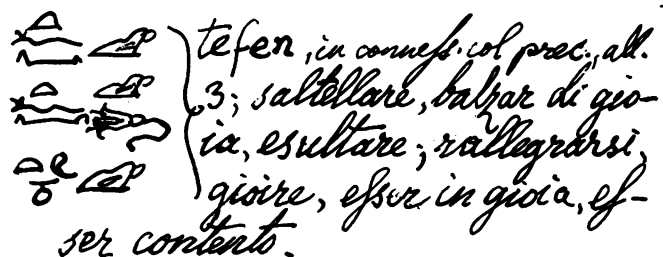 tefen, in conness. col prec., all.
3; saltellare, balzar di gio-
ia, esultare; rallegrarsi,
gioire, esser in gioia, es-
ser contento.